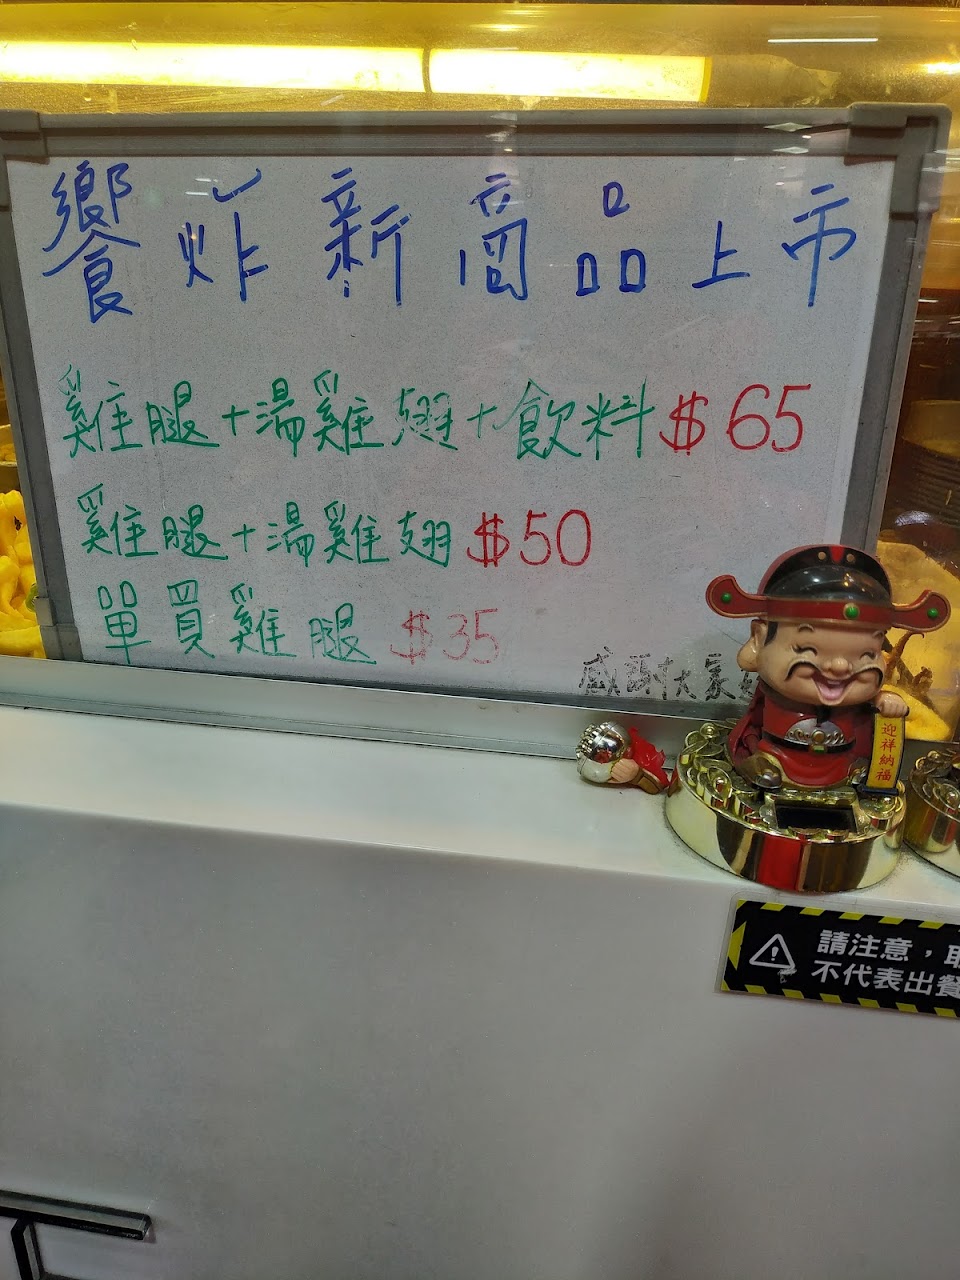 饗炸新商品上市
雞腿+湯雞翅+飲料$65
雞腿+湯雞翅$50
單買雞腿 $35
感謝大家
迎祥納福
請注意，取
不代表出餐